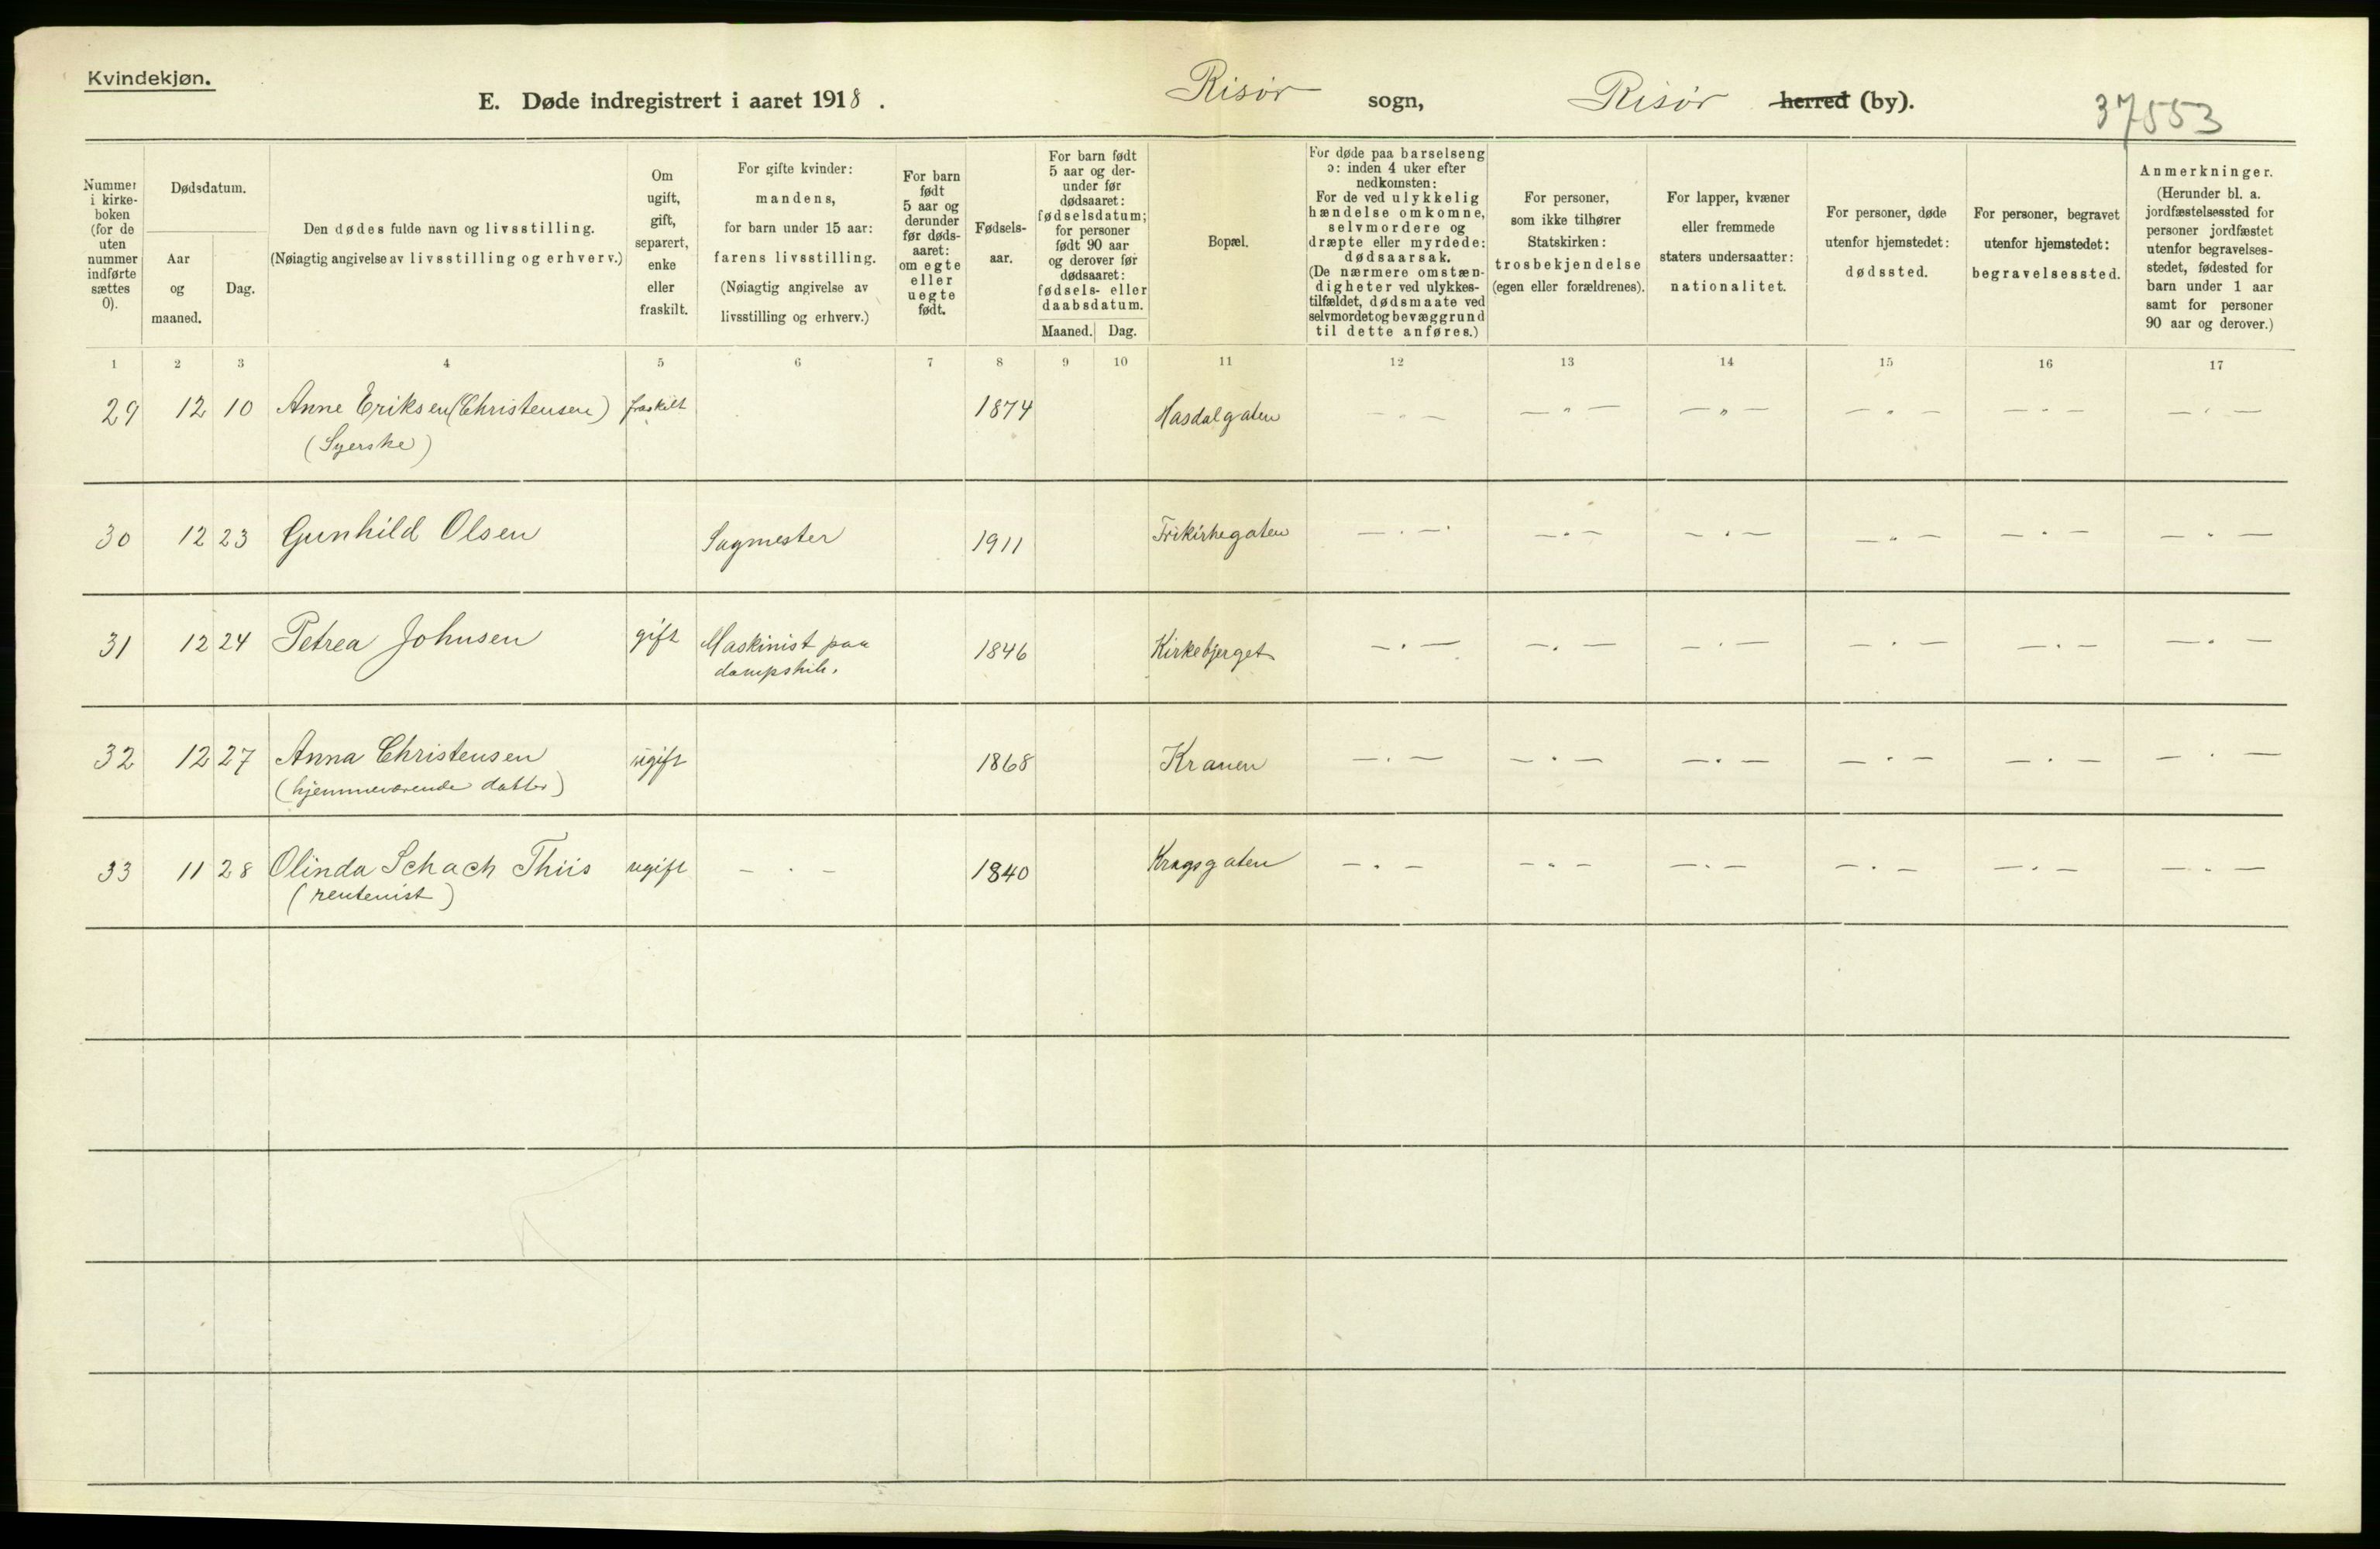 Kvindekjøn.
E. Døde indregistrert i aaret 1918. Risør sogn, Risør herred (by). 37553
Nummer i kirkeboken (for de uten nummer indførte sættes 0).
Dødsdatum.
Aar og maaned.
Dag.
Den dødes fulde navn og livsstilling.
(Nøiagtig angivelse av livsstilling og erhverv.)
Om ugift, gift, separert, enke eller fraskilt.
For gifte kvinder: mandens, for barn under 15 aar: farens livsstilling. (Nøiagtig angivelse av livsstilling og erhverv.)
For barn født 5 aar og derunder før dødsaaret: om egte eller uegte født.
Fødselsaar.
For barn født 5 aar og derunder før dødsaaret: fødselsdatum; for personer født 90 aar og derover før dødsaaret: fødsels- eller daabsdatum.
Maaned. Dag.
Bopæl.
For døde paa barselseng ɔ: inden 4 uker efter nedkomsten: For de ved ulykkelig hændelse omkomne, selvmordere og dræpte eller myrdede: dødsaarsak. (De nærmere omstændigheter ved ulykkestilfældet, dødsmaate ved selvmordet og bevæggrund til dette anføres.)
For personer, som ikke tilhører Statskirken: trosbekjendelse (egen eller forældrenes).
For lapper, kvæner eller fremmede staters undersaatter: nationalitet.
For personer, døde utenfor hjemstedet: dødssted.
For personer, begravet utenfor hjemstedet: begravelsessted.
Anmerkninger. (Herunder bl. a. jordfæstelsessted for personer jordfæstet utenfor begravelsesstedet, fødested for barn under 1 aar samt for personer 90 aar og derover.)
1 2 3 4 5 6 7 8 9 10 11 12 13 14 15 16 17
29 12 10 Anne Eriksen (Christensen) fraskilt 1874 Hasdalgaten
(Syerske)
30 12 23 Gunhild Olsen Sagmester 1911 Frikirkegaten
31 12 24 Petrea Johnsen gift Maskinist paa 1846 Kirkebjerget
dampskib.
32 12 27 Anna Christensen ugift 1868 Kranen
(hjemmeværende datter)
33 11 28 Olinda Schach Thiis ugift 1840 Kragsgaten
(rentenist)